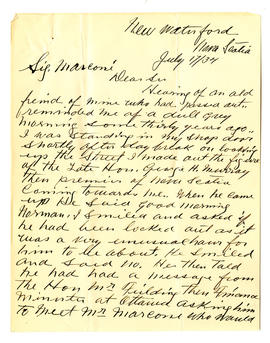 New Waterford
Nova Scotia
July 1/34
Sig. Marconi
Dear Sir
Hearing of an old
freind of mine who had passed out.
reminded me of a dull grey
morning some thirty years ago.
I was standing in my shop door
shortly after day break on looking
up the Street I made out the figure
of the Late Hon. George H. Murray
then premier of Nova Scotia
coming towards me. When he came
up He said good morning
Norman. I smiled and asked if
he had been locked out as it
was a very unusual hour for
him to be about. He smiled
and said no. He then told
he had had a message from
the Hon Mr Fielding then finance
Minister at Ottawa asking him
to meet Mr Marconi who would